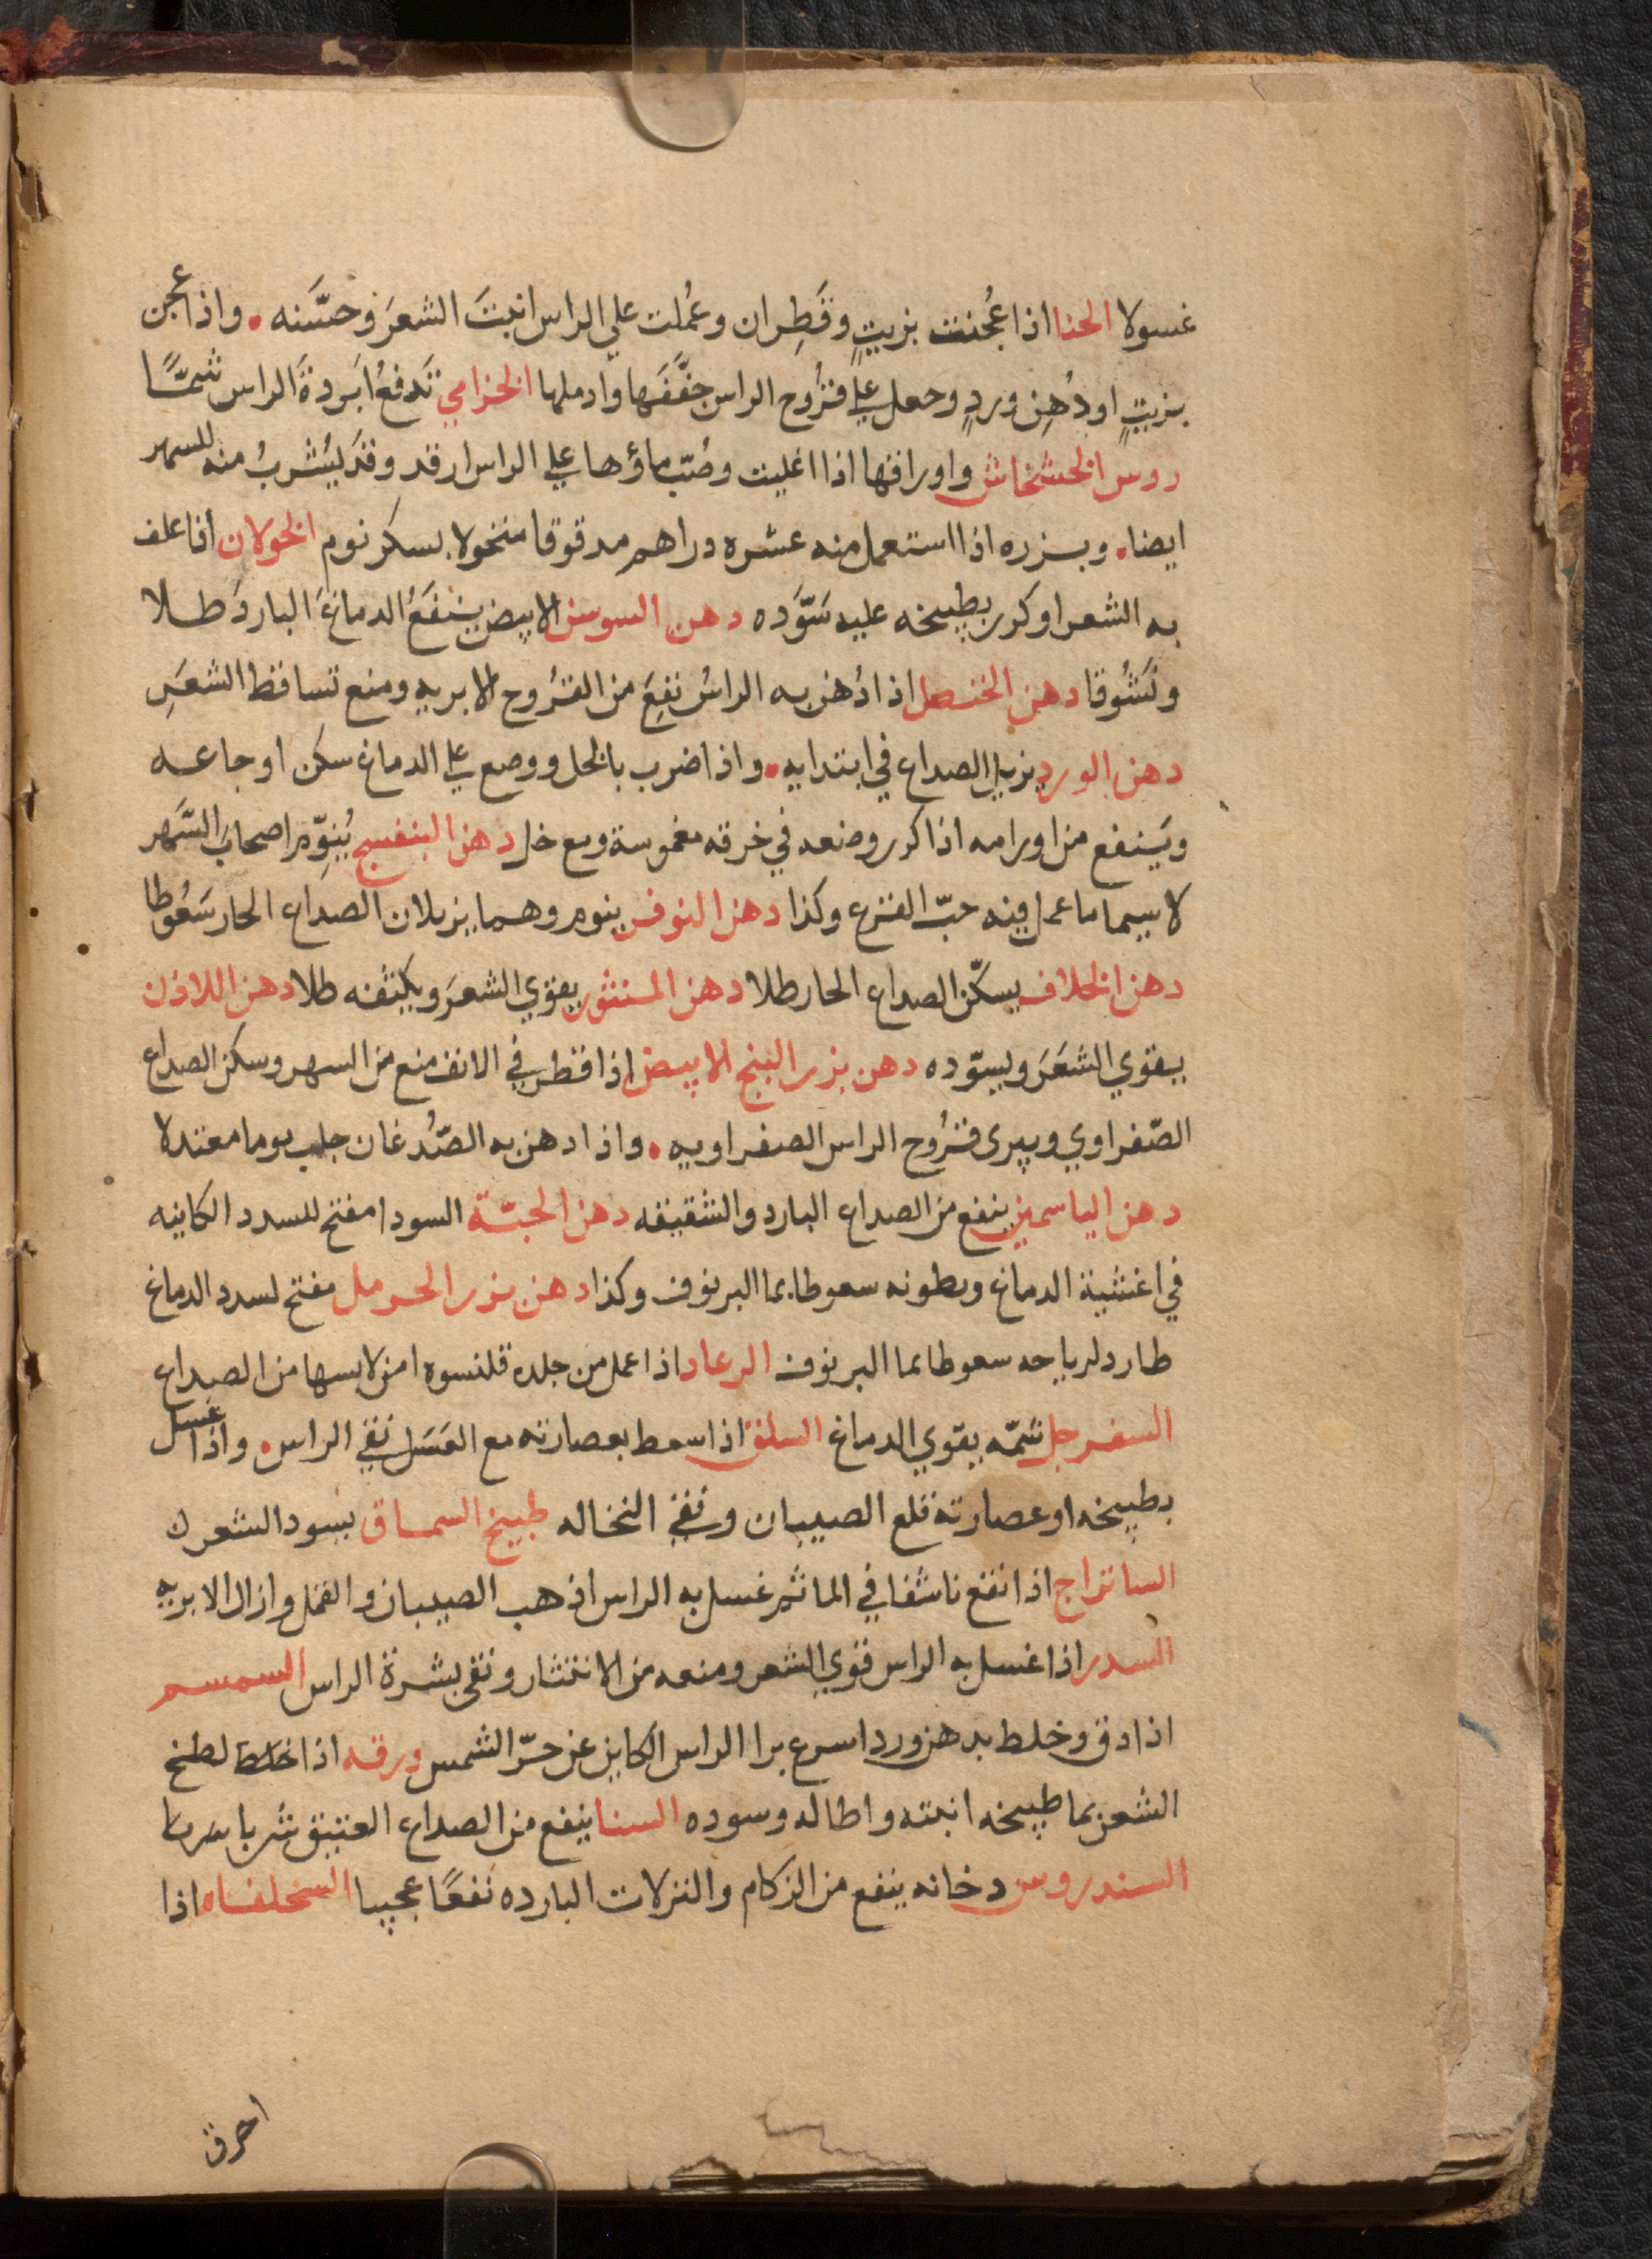 غسولا الحنا اذا عُجنت بزيتٍ وقَطِران وعُملت علي الراس انبتَ الشعرَ وحسَّنه . واذا عجن
بزيتٍ او دُهِن وردٍ وجعل علي قرُوح الراس جفَّفَها وادملها الخزامي تَدفعُ ابَردةَ الراس شمًّا
روس الخشخاش واوراقها اذا اغليت وصُبّ ماؤها علي الراس ارقد وقد يُشربُ منه للسهر
ايضا . وبزره اذا استعمل منه عشره دراهم مدقوقا منخولا بسكر نوم الخولان اذا علف
به الشعر او كرر بطبيخه عليه سَوَّده دهن السوسن الابيض ينفَعُ الدماغَ الباردَ طلا
ونَشُوقا دهن الخنصل اذا دُهن به الراسُ نفِعَ من القرُوح الابريه ومنع تساقط الشعَرِ
دهن الورد يزيل الصداع في ابتدايه . واذا ضرب بالخل ووضع علي الدماغ سكن اوجاعه
ويَنفع من اورامه اذا كرر وضعه في خرقه مغموسة ومع خل دهن البنفسج يُنوِّم اصحابَ السَّهر
لا سيما ما عمل فيه حبّ القرع وكذا دهن النوفر ينوم وهما يزيلان الصداع الحار سَعُوطا
دهن الخلاف يسكّن الصداع الحار طلا دهن المنثور يقوي الشعرَ ويكثفه طلا دهن اللاذن
يقوي الشعَرَ ويسوّده دهن بزر البنج الابيض اذا قطر في الانف منع من السهر وسكن الصداع
الصّفراوي ويبرى قرُوح الراس الصفراويه . واذا دهن به الصُّدغان جلب نوما معتدلا
دهن الياسمين ينفع من الصداع البارد والشقيقه دهن الحبّة السودا مفتح للسدد الكاينه
في اغشية الدماغ وبطونه سعوطا بما البرنوف وكذا دهن بزر الحرمل مفتح لسدد الدماغ
طارد لرياحه سعوطا بما البرنوف الرعاد اذا عمل من جلده قلنسوه امن لابسها من الصداع
السفرجل شمّه يقوي الدماغ السلق اذا سعط بعصارته مع العَسَل نقي الراس . واذا غسل
بطبيخه او عصارته قلع الصيبان ونقي النخاله طبيخ السماق يسود الشعر
الساتراج اذا نقع ناشفا في الما ثم غسل به الراس اذهب الصيبان والقمل وازال الابريه
السدر اذا غسل به الراس قوي الشعر ومنعه من الانتثار ونقى بشرة الراس السمسم
اذا دق وخلط بدهن ورد اسرع برا الراس الكاين عن حرّ الشمس ورقه اذا لطخ
الشعر بما طبيخه انبته واطاله وسوده السنا ينفع من الصداع العتيق شربا
السندروس دخانه ينفع من الزكام والنزلات البارده نفعًا عجيبا السخلفاه اذا
احرق